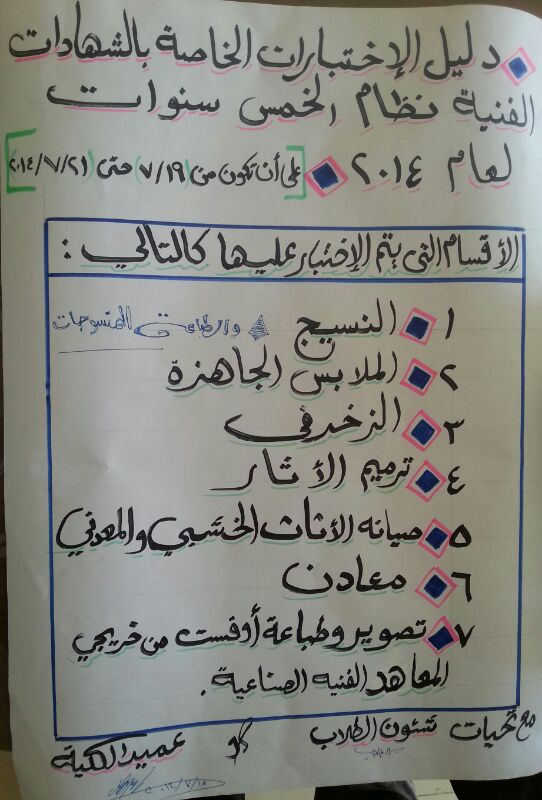 دليل الإختبارات الخاصة بالشهادات
الفنية نظام الخمس سنوات
لعام ٢٠١٤ [على أن تكون من (٧/١٩) حتى (٢٠١٤/٧/٢١)]
الأقسام التى يتم الإختبار عليها كالتالي :
١ النسيج وطباعة المنسوجات
٢ الملابس الجاهزة
٣ الزخرفى
٤ ترميم الأثار
٥ صيانه الأثاث الخشبي والمعدني
٦ معادن
٧ تصوير وطباعة أوفست من خريجي
المعاهد الفنيه الصناعية .
مع تحيات شئون الطلاب عميد الكلية